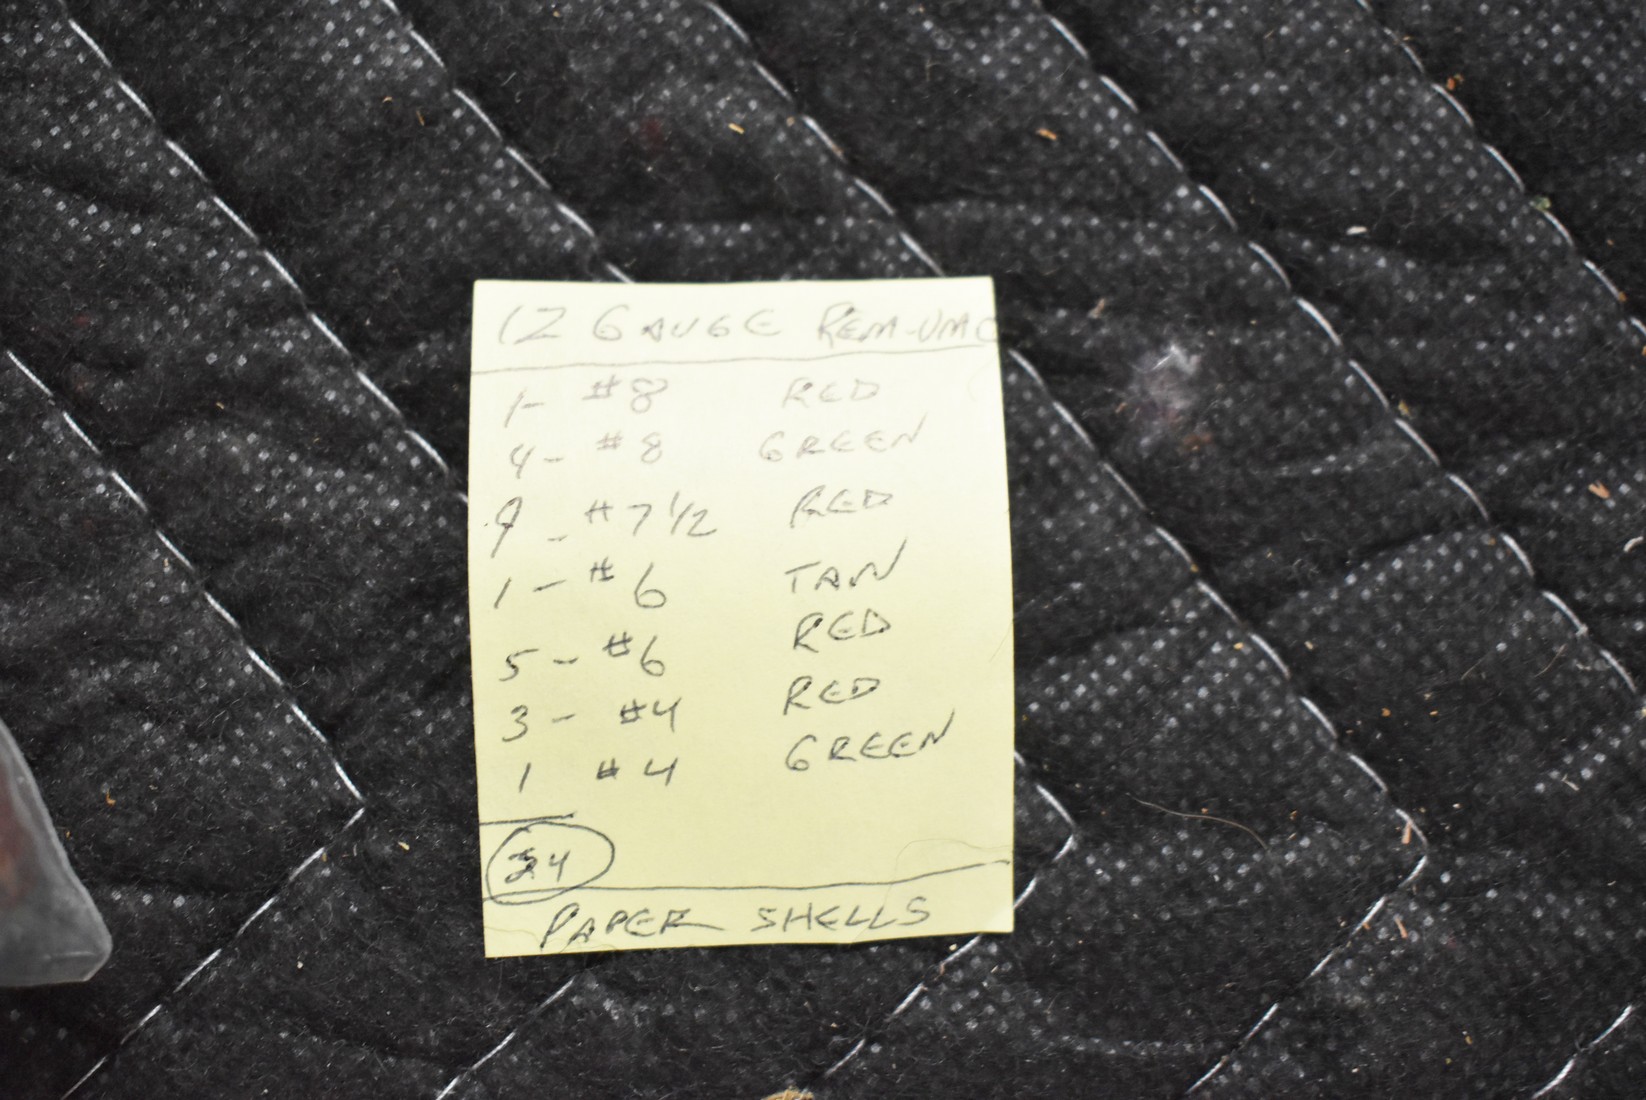 12 GAUGE REM-UMC
1- #8 RED
4- #8 GREEN
9 - #7 1/2 RED
1 - #6 TAN
5 - #6 RED
3 - #4 RED
1 #4 GREEN
24
PAPER SHELLS